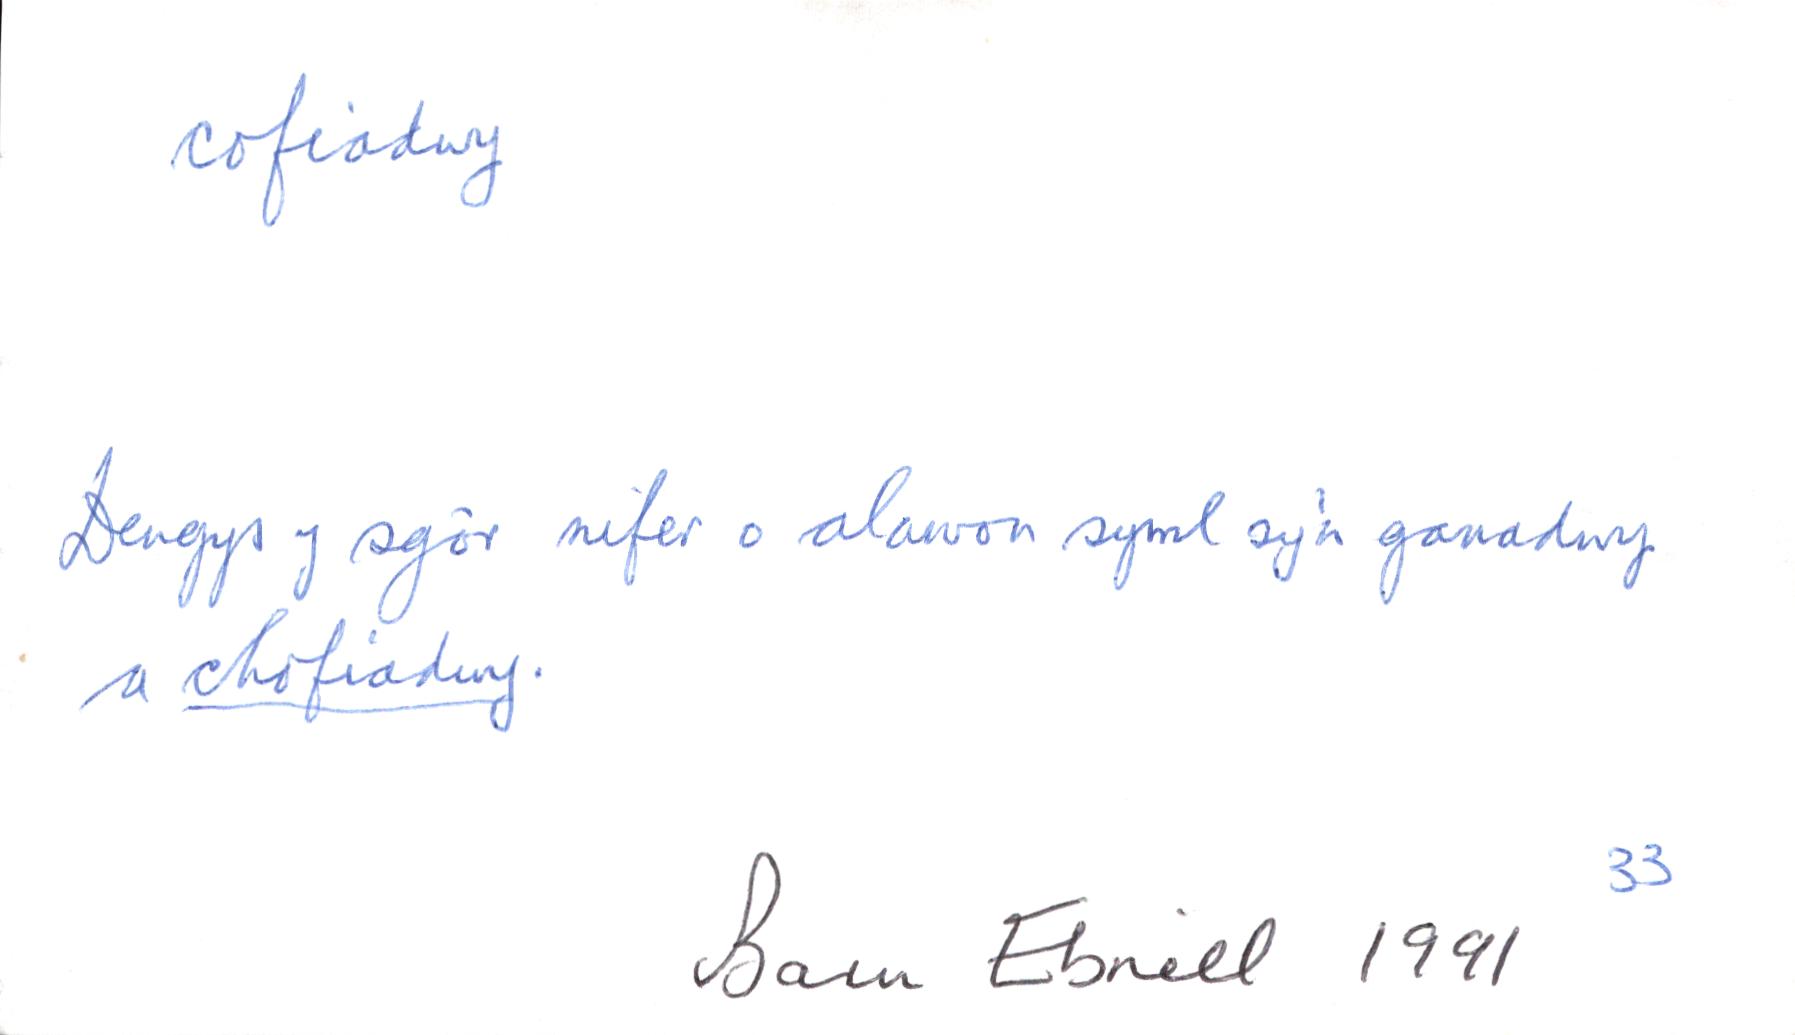 cofiadwy
Dengys y sgôr nifer o alawon syml sy'n ganadwy
a chofiadwy.
33
Barn Ebrill 1991